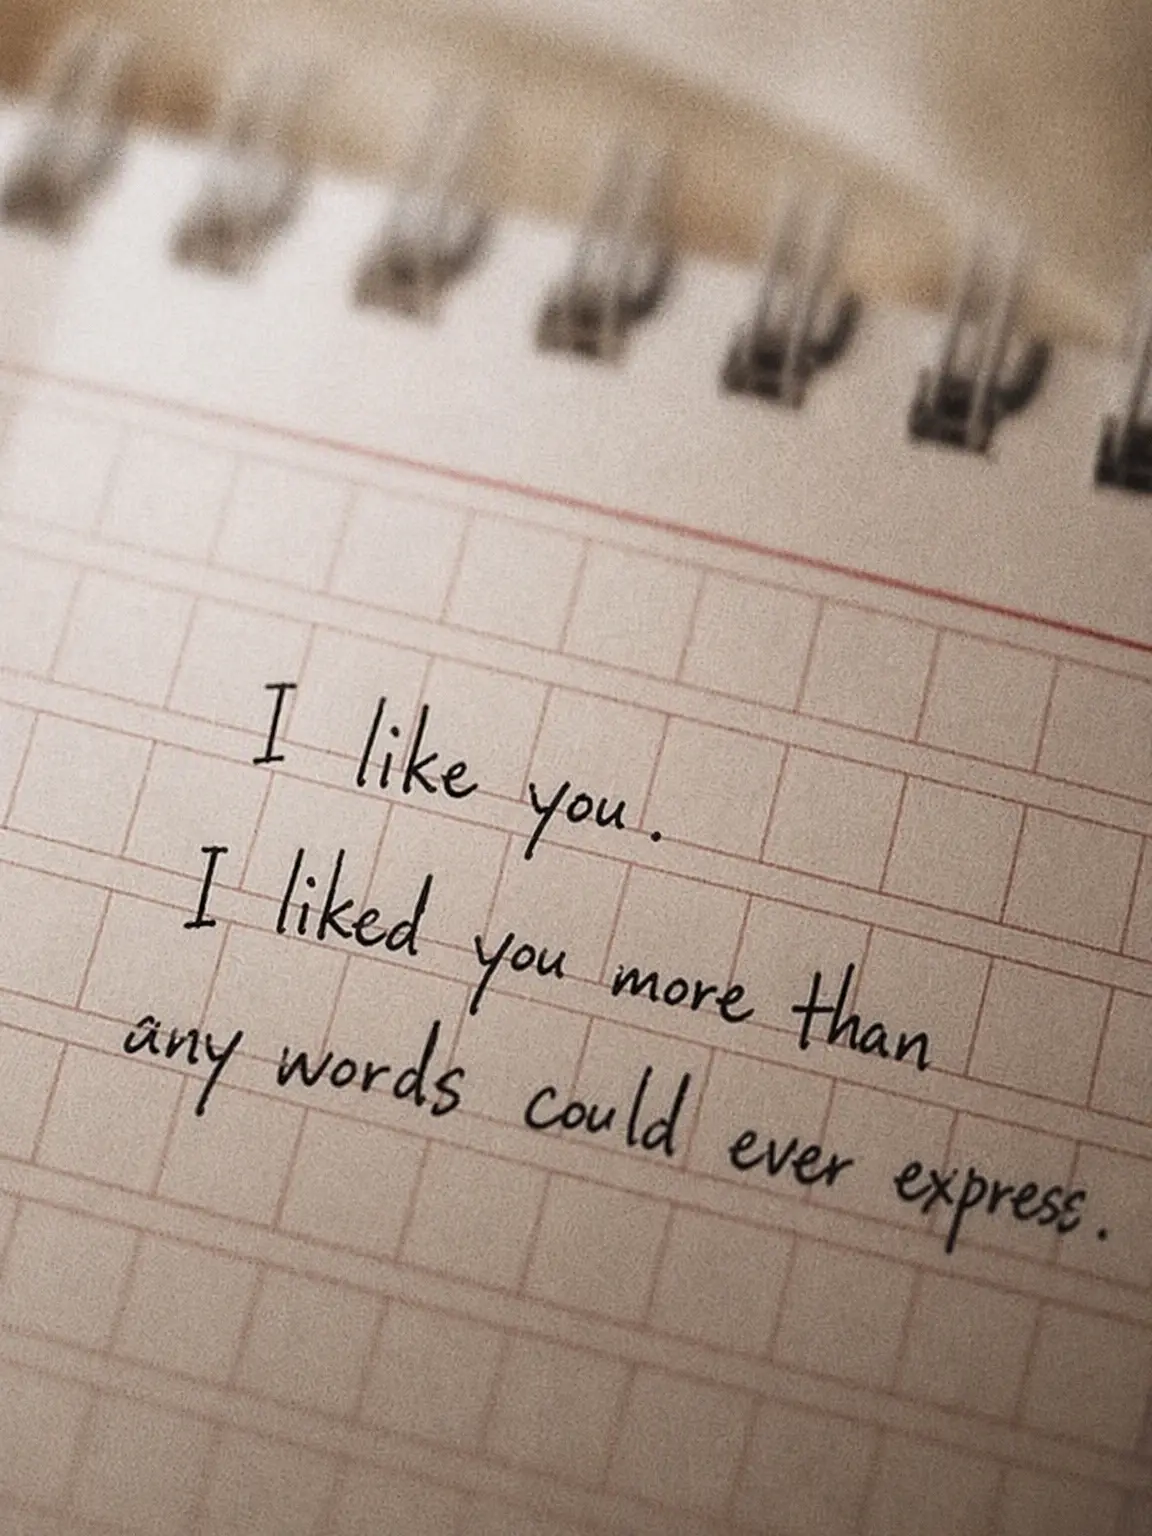 I like you.
I liked you more than
any words could ever express.